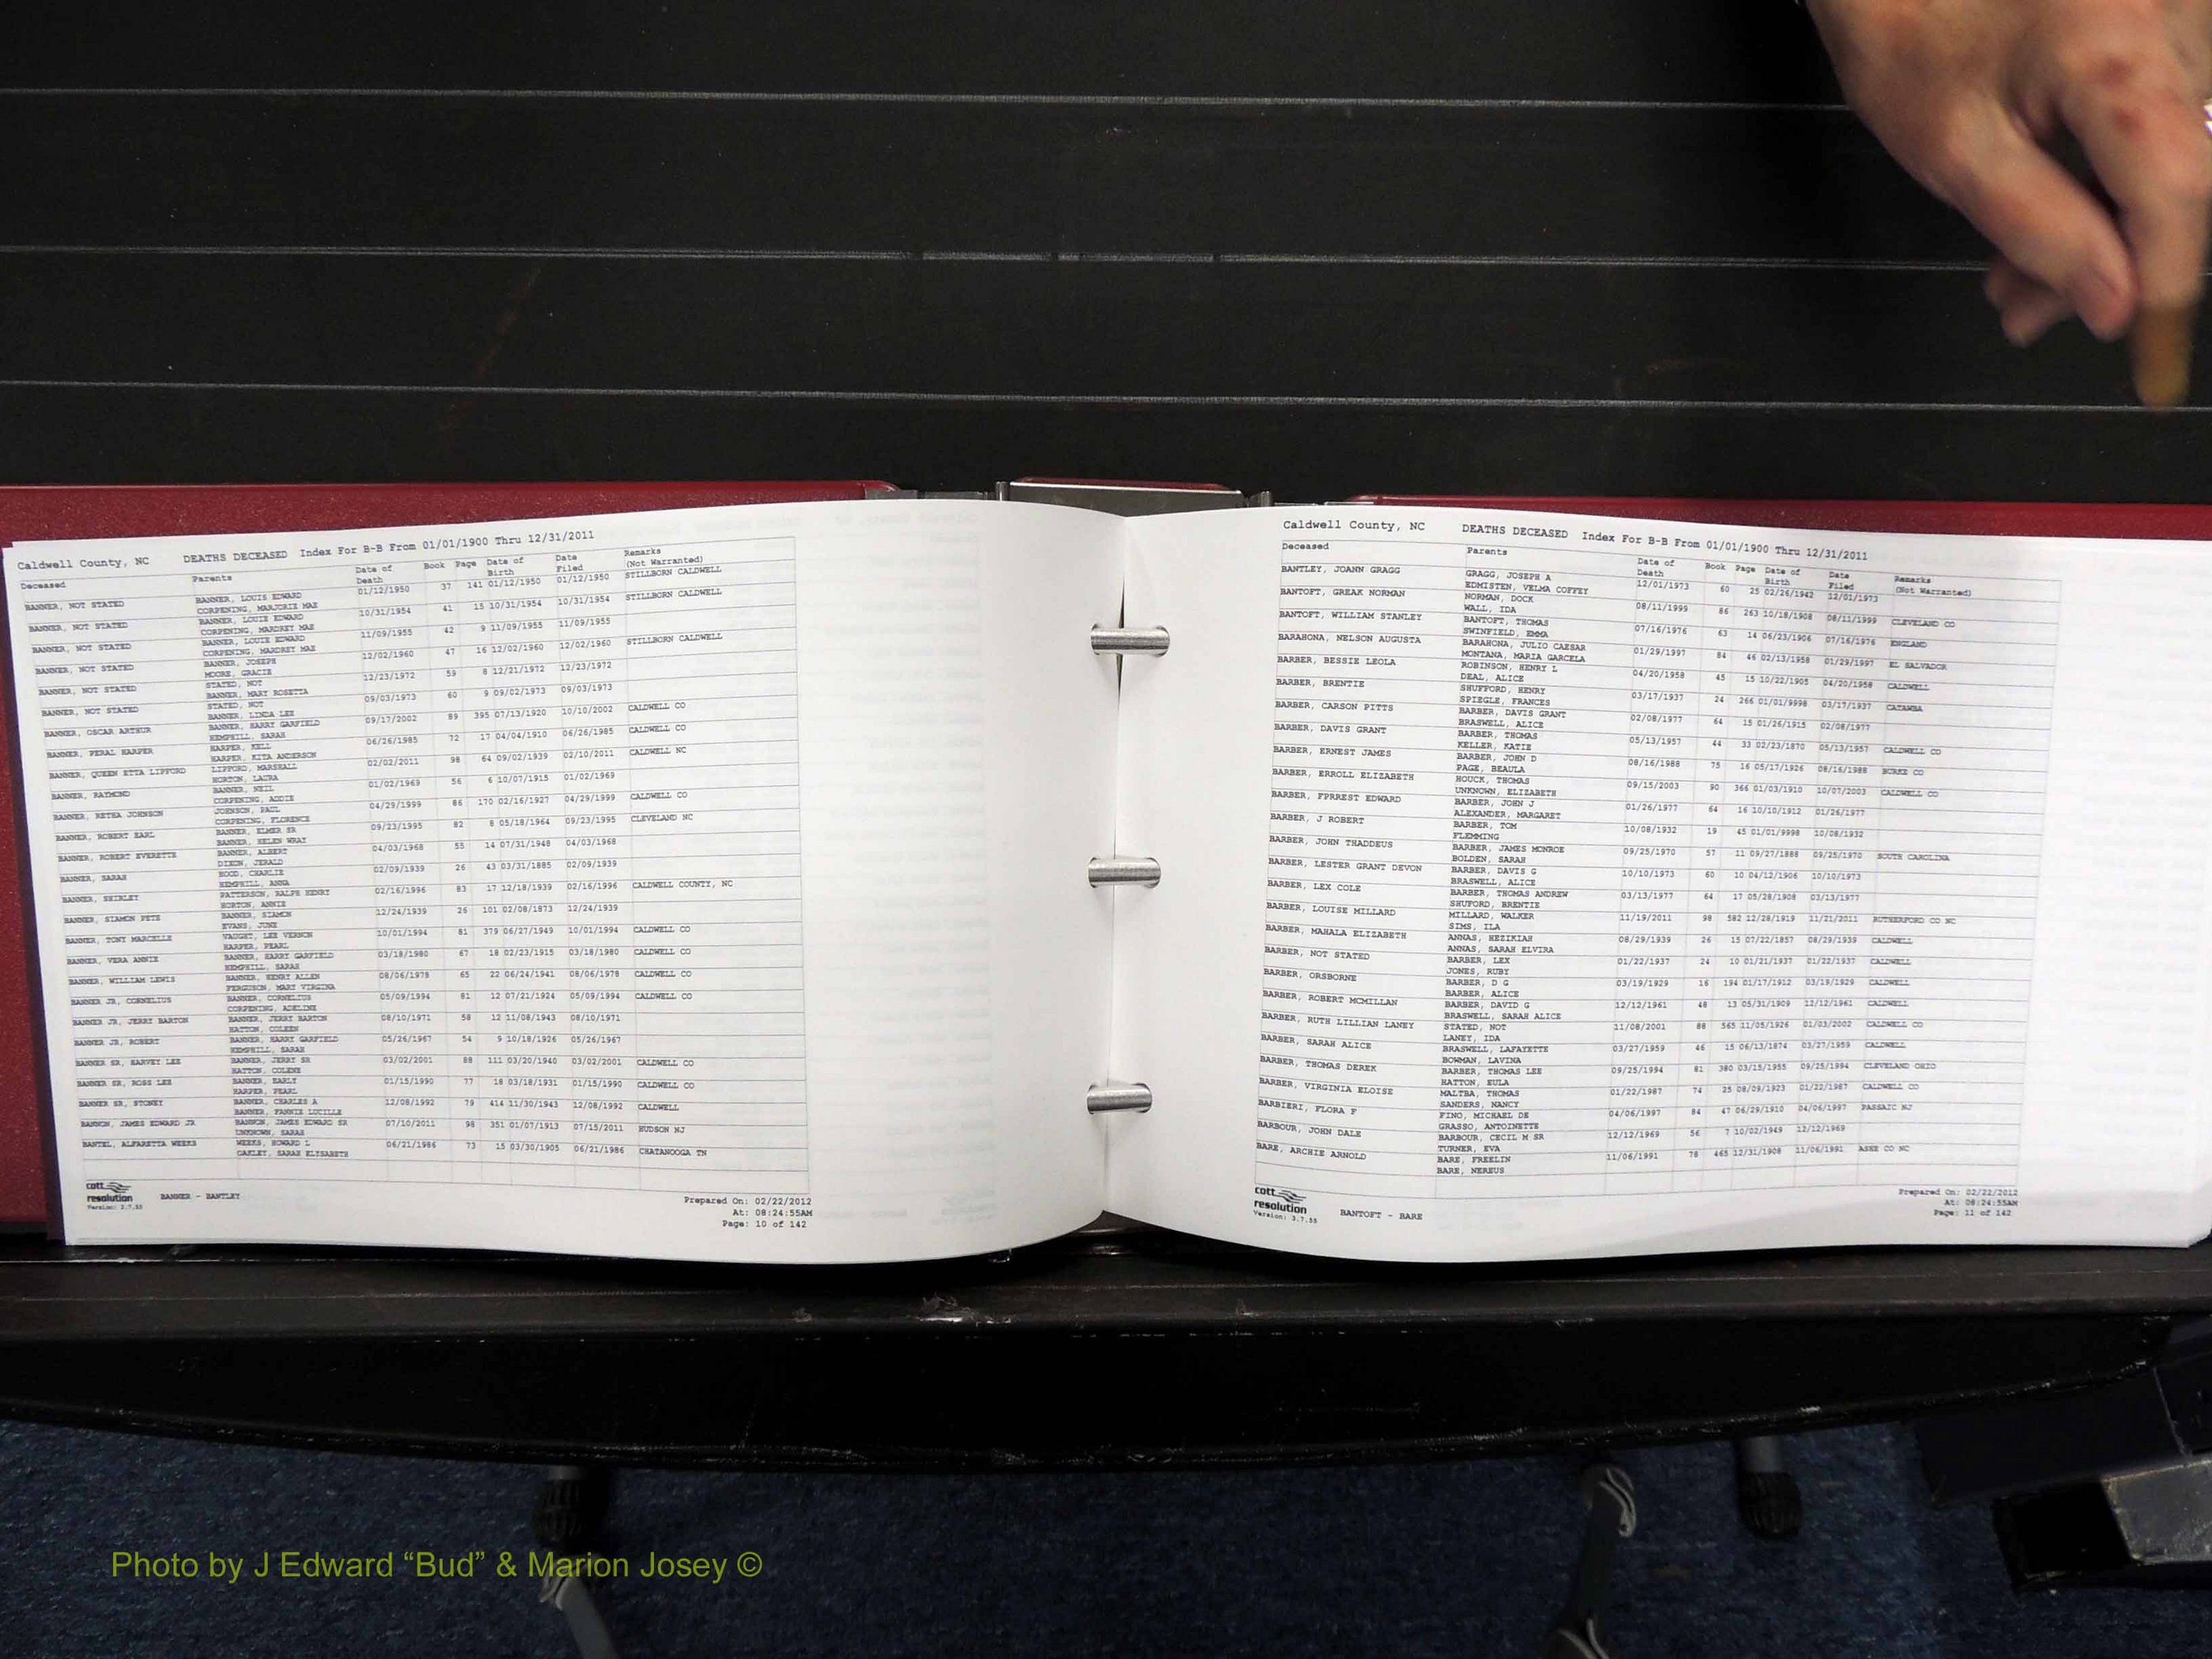 Caldwell County, NC DEATHS DECEASED Index For B-B From 01/01/1900 Thru 12/31/2011
Deceased Parents Date of Death Book Page Date of Birth Date Filed Remarks (Not Warranted)
BANNER, NOT STATED BANNER, LOUIS EDWARD 01/12/1950 37 141 01/12/1950 01/12/1950 STILLBORN CALDWELL
CORPENING, MARJORIE MAE
BANNER, NOT STATED BANNER, LOUIE EDWARD 10/31/1954 41 15 10/31/1954 10/31/1954 STILLBORN CALDWELL
CORPENING, MARDREY MAE
BANNER, NOT STATED BANNER, LOUIE EDWARD 11/09/1955 42 9 11/09/1955 11/09/1955
CORPENING, MARDREY MAE
BANNER, NOT STATED BANNER, JOSEPH 12/02/1960 47 16 12/02/1960 12/02/1960 STILLBORN CALDWELL
MOORE, GRACIE
BANNER, NOT STATED STATED, NOT 12/23/1972 59 8 12/21/1972 12/23/1972
BANNER, MARY ROSETTA
BANNER, NOT STATED STATED, NOT 09/03/1973 60 9 09/02/1973 09/03/1973
BANNER, LINDA LEE
BANNER, OSCAR ARTHUR BANNER, HARRY GARFIELD 09/17/2002 89 395 07/13/1920 10/10/2002 CALDWELL CO
HEMPHILL, SARAH
BANNER, PERAL HARPER HARPER, KELL 06/26/1985 72 17 04/04/1910 06/26/1985 CALDWELL CO
HARPER, KITA ANDERSON
BANNER, QUEEN ETTA LIPFORD LIPFORD, MARSHALL 02/02/2011 98 64 09/02/1939 02/10/2011 CALDWELL NC
HORTON, LAURA
BANNER, RAYMOND BANNER, NEIL 01/02/1969 56 6 10/07/1915 01/02/1969
CORPENING, ADDIE
BANNER, RETHA JOHNSON JOHNSON, PAUL 04/29/1999 86 170 02/16/1927 04/29/1999 CALDWELL CO
CORPENING, FLORENCE
BANNER, ROBERT EARL BANNER, ELMER SR 09/23/1995 82 8 05/18/1964 09/23/1995 CLEVELAND NC
BANNER, HELEN WRAY
BANNER, ROBERT EVERETTE BANNER, ALBERT 04/03/1968 55 14 07/31/1948 04/03/1968
DIXON, JERALD
BANNER, SARAH HOOD, CHARLIE 02/09/1939 26 43 03/31/1885 02/09/1939
HEMPHILL, ANNA
BANNER, SHIRLEY PATTERSON, RALPH HENRY 02/16/1996 83 17 12/18/1939 02/16/1996 CALDWELL COUNTY, NC
HORTON, ANNIE
BANNER, SIAMON PETE BANNER, SIAMON 12/24/1939 26 101 02/08/1873 12/24/1939
EVANS, JUNE
BANNER, TONY MARCELLE VAUGHT, LEE VERNON 10/01/1994 81 379 06/27/1949 10/01/1994 CALDWELL CO
HARPER, PEARL
BANNER, VERA ANNIE BANNER, HARRY GARFIELD 03/18/1980 67 18 02/23/1915 03/18/1980 CALDWELL CO
HEMPHILL, SARAH
BANNER, WILLIAM LEWIS BANNER, HENRY ALLEN 08/06/1978 65 22 06/24/1941 08/06/1978 CALDWELL CO
FERGUSON, MARY VIRGINA
BANNER JR, CORNELIUS BANNER, CORNELIUS 05/09/1994 81 12 07/21/1924 05/09/1994 CALDWELL CO
CORPENING, ADELINE
BANNER JR, JERRY BARTON BANNER, JERRY BARTON 08/10/1971 58 12 11/08/1943 08/10/1971
HATTON, COLEEN
BANNER JR, ROBERT BANNER, HARRY GARFIELD 05/26/1967 54 9 10/18/1926 05/26/1967
HEMPHILL, SARAH
BANNER SR, HARVEY LEE BANNER, JERRY SR 03/02/2001 88 111 03/20/1940 03/02/2001 CALDWELL CO
HATTON, COLENE
BANNER SR, ROSS LEE BANNER, EARLY 01/15/1990 77 18 03/18/1931 01/15/1990 CALDWELL CO
HARPER, PEARL
BANNER SR, STONEY BANNER, CHARLES A 12/08/1992 79 414 11/30/1943 12/08/1992 CALDWELL
BANNER, FANNIE LUCILLE
BANNON, JAMES EDWARD JR BANNON, JAMES EDWARD SR 07/10/2011 98 351 01/07/1913 07/15/2011 HUDSON NJ
UNKNOWN, SARAH
BANTEL, ALFARETTA WEEKS WEEKS, HOWARD L 06/21/1986 73 15 03/30/1905 06/21/1986 CHATANOOGA TN
OAKLEY, SARAH ELYSABETH
cott resolution
Version: 3.7.55
BANNER - BANTLEY
Prepared On: 02/22/2012
At: 08:24:55AM
Page: 10 of 142
Caldwell County, NC DEATHS DECEASED Index For B-B From 01/01/1900 Thru 12/31/2011
Deceased Parents Date of Death Book Page Date of Birth Date Filed Remarks (Not Warranted)
BANTLEY, JOANN GRAGG GRAGG, JOSEPH A 12/01/1973 60 25 02/26/1942 12/01/1973
EDMISTEN, VELMA COFFEY
BANTOFT, GREAK NORMAN NORMAN, DOCK 08/11/1999 86 263 10/18/1908 08/11/1999 CLEVELAND CO
WALL, IDA
BANTOFT, WILLIAM STANLEY BANTOFT, THOMAS 07/16/1976 63 14 06/23/1906 07/16/1976 ENGLAND
SWINFIELD, EMMA
BARAHONA, NELSON AUGUSTA BARAHONA, JULIO CAESAR 01/29/1997 84 46 02/13/1958 01/29/1997 EL SALVADOR
MONTANA, MARIA GARCELA
BARBER, BESSIE LEOLA ROBINSON, HENRY L 04/20/1958 45 15 10/22/1905 04/20/1958 CALDWELL
DEAL, ALICE
BARBER, BRENTIE SHUFFORD, HENRY 03/17/1937 24 266 01/01/9998 03/17/1937 CATAWBA
SPIEGLE, FRANCES
BARBER, CARSON PITTS BARBER, DAVIS GRANT 02/08/1977 64 15 01/26/1915 02/08/1977
BRASWELL, ALICE
BARBER, DAVIS GRANT BARBER, THOMAS 05/13/1957 44 33 02/23/1870 05/13/1957 CALDWELL CO
KELLER, KATIE
BARBER, ERNEST JAMES BARBER, JOHN D 08/16/1988 75 16 05/17/1926 08/16/1988 BURKE CO
PAGE, BEAULA
BARBER, ERROLL ELIZABETH HOUCK, THOMAS 09/15/2003 90 366 01/03/1910 10/07/2003 CALDWELL CO
UNKNOWN, ELIZABETH
BARBER, FPRREST EDWARD BARBER, JOHN J 01/26/1977 64 16 10/10/1912 01/26/1977
ALEXANDER, MARGARET
BARBER, J ROBERT BARBER, TOM 10/08/1932 19 45 01/01/9998 10/08/1932
FLEMMING
BARBER, JOHN THADDEUS BARBER, JAMES MONROE 09/25/1970 57 11 09/27/1888 09/25/1970 SOUTH CAROLINA
BOLDEN, SARAH
BARBER, LESTER GRANT DEVON BARBER, DAVIS G 10/10/1973 60 10 04/12/1906 10/10/1973
BRASWELL, ALICE
BARBER, LEX COLE BARBER, THOMAS ANDREW 03/13/1977 64 17 05/28/1908 03/13/1977
SHUFORD, BRENTIE
BARBER, LOUISE MILLARD MILLARD, WALKER 11/19/2011 98 582 12/28/1919 11/21/2011 RUTHERFORD CO NC
SIMS, ILA
BARBER, MAHALA ELIZABETH ANNAS, HEZIKIAH 08/29/1939 26 15 07/22/1857 08/29/1939 CALDWELL
ANNAS, SARAH ELVIRA
BARBER, NOT STATED BARBER, LEX 01/22/1937 24 10 01/21/1937 01/22/1937 CALDWELL
JONES, RUBY
BARBER, ORSBORNE BARBER, D G 03/19/1929 16 194 01/17/1912 03/19/1929 CALDWELL
BARBER, ALICE
BARBER, ROBERT MCMILLAN BARBER, DAVID G 12/12/1961 48 13 05/31/1909 12/12/1961 CALDWELL
BRASWELL, SARAH ALICE
BARBER, RUTH LILLIAN LANEY STATED, NOT 11/08/2001 88 565 11/05/1926 01/03/2002 CALDWELL CO
LANEY, IDA
BARBER, SARAH ALICE BRASWELL, LAFAYETTE 03/27/1959 46 15 06/13/1874 03/27/1959 CALDWELL
BOWMAN, LAVINA
BARBER, THOMAS DEREK BARBER, THOMAS LEE 09/25/1994 81 380 03/15/1955 09/25/1994 CLEVELAND OHIO
HATTON, EULA
BARBER, VIRGINIA ELOISE MALTBA, THOMAS 01/22/1987 74 25 08/09/1923 01/22/1987 CALDWELL CO
SANDERS, NANCY
BARBIERI, FLORA F FINO, MICHAEL DE 04/06/1997 84 47 06/29/1910 04/06/1997 PASSAIC NJ
GRASSO, ANTOINETTE
BARBOUR, JOHN DALE BARBOUR, CECIL M SR 12/12/1969 56 7 10/02/1949 12/12/1969
TURNER, EVA
BARE, ARCHIE ARNOLD BARE, FREELIN 11/06/1991 78 465 12/31/1908 11/06/1991 ASHE CO NC
BARE, NEREUS
cott resolution
Version: 3.7.55
BANTOFT - BARE
Prepared On: 02/22/2012
At: 08:24:55AM
Page: 11 of 142
Photo by J Edward “Bud” & Marion Josey ©